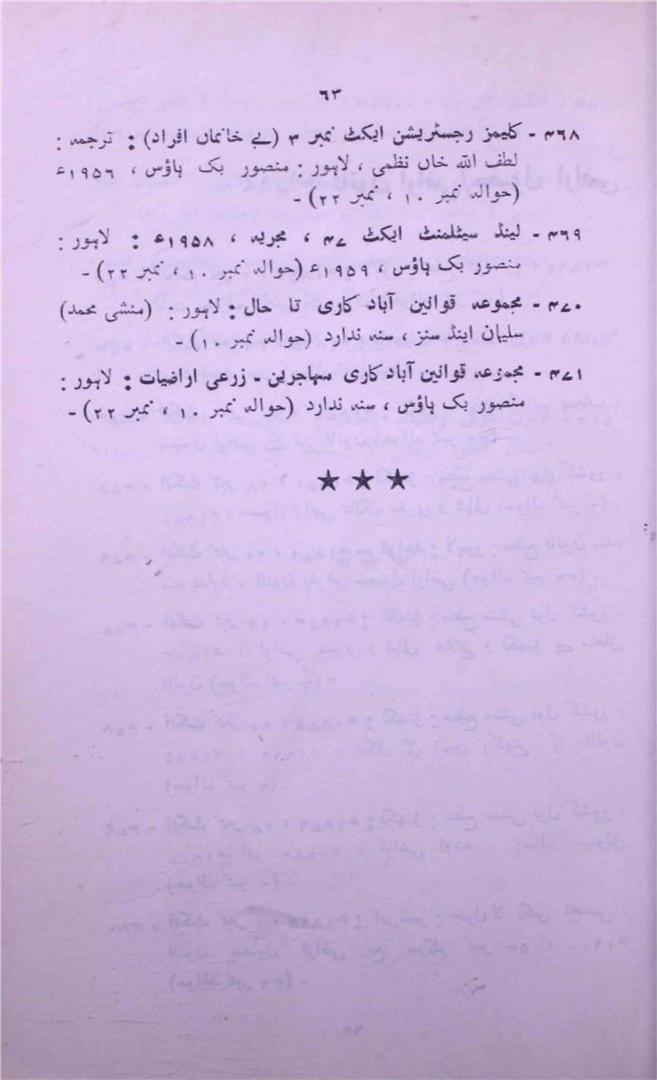 ۶۳
۴۶۸ - کلیمز رجسٹریشن ایکٹ نمبر ۳ (بے خانماں افراد) : ترجمہ :
لطف اللہ خاں نظمی ، لاہور : منصور بک ہاؤس ، ۱۹۵۶ء
(حوالہ نمبر ۱۰ ، نمبر ۲۲) -
۴۶۹ - لینڈ سیٹلمنٹ ایکٹ ۴۷ ، مجریہ ، ۱۹۵۸ء : لاہور :
منصور بک ہاؤس ، ۱۹۵۹ء (حوالہ نمبر ۱۰ ، نمبر ۲۲) -
۴۷۰ - مجموعہ قوانین آبادکاری تا حال : لاہور : (منشی محمد)
سلیمان اینڈ سنز ، سنہ ندارد (حوالہ نمبر ۱۰) -
۴۷۱ - مجموعہ قوانین آبادکاری مہاجرین - زرعی اراضیات : لاہور :
منصور بک ہاؤس ، سنہ ندارد (حوالہ نمبر ۱۰ ، نمبر ۲۲) -
★ ★ ★